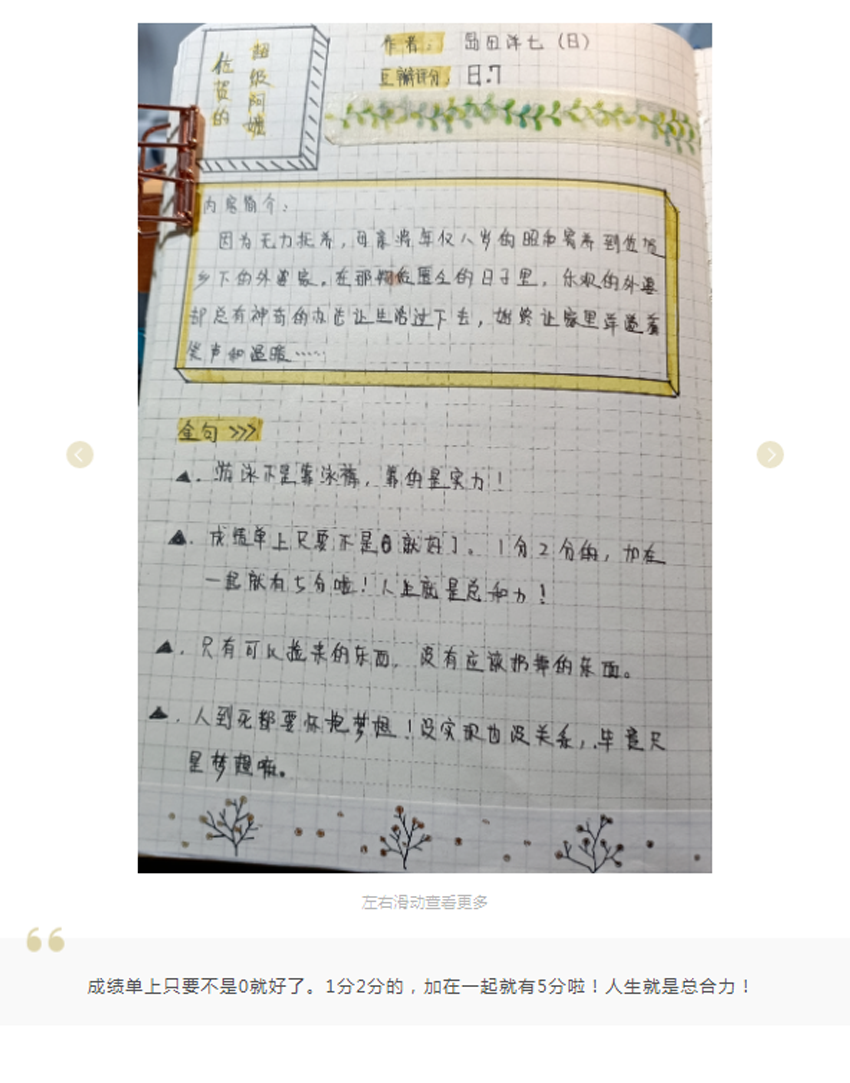 佐贺的
超级阿嬷
作者： 岛田洋七（日）
豆瓣评分： 8.7
内容简介：
因为无力抚养，母亲将年仅八岁的昭和寄养到佐贺
乡下的外婆家。在那物质匮乏的日子里，乐观的外婆
却总有神奇的办法让生活过下去，始终让家里洋溢着
笑声和温暖……
金句 >>>
▲. 游泳不是靠泳裤，靠的是实力！
▲. 成绩单上只要不是0就好了。1分2分的，加在
一起就有5分啦！人生就是总和力！
▲. 只有可以捡来的东西，没有应该扔掉的东西。
▲. 人到死都要怀抱梦想！没实现也没关系，毕竟只
是梦想嘛。
左右滑动查看更多
成绩单上只要不是0就好了。1分2分的，加在一起就有5分啦！人生就是总合力！